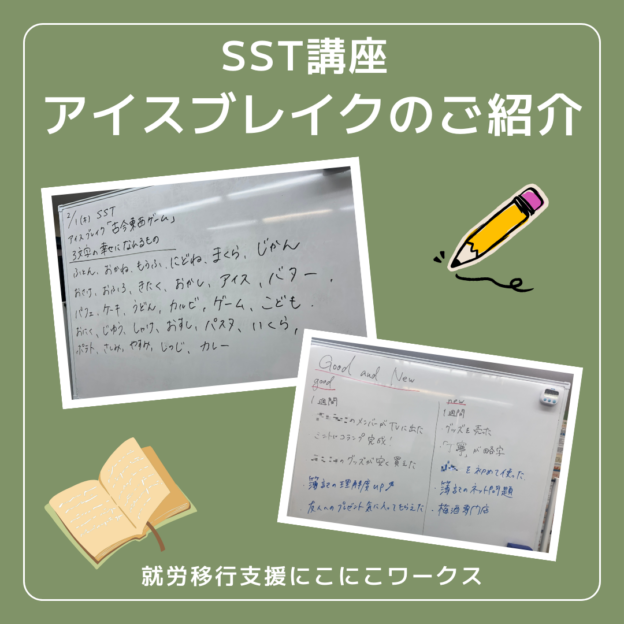 SST講座
アイスブレイクのご紹介
2/1(木) SST
アイスブレイク「古今東西ゲーム」
3文字の幸せになれるもの
ふとん、おかね、もうふ、にどね、まくら、じかん
おふろ、きたく、おかし、アイス、バター、
パフェ、ケーキ、うどん、カルビ、ゲーム、こども、
じゆう、しゃけ、おすし、パスタ、いくら、
ポテト、さしみ、やすみ、しつじ、カレー
Good and New
good
1週間
メンバーがTVに出た
完成!
グッズが安く買えた
簿記の理解度up↗
友人へのプレゼント気に入ってもらえた
new
1週間
・グッズを売った
・「丁寧」が略字
を初めて使った
・簿記のネット問題
・梅酒専門店
就労移行支援にこにこワークス